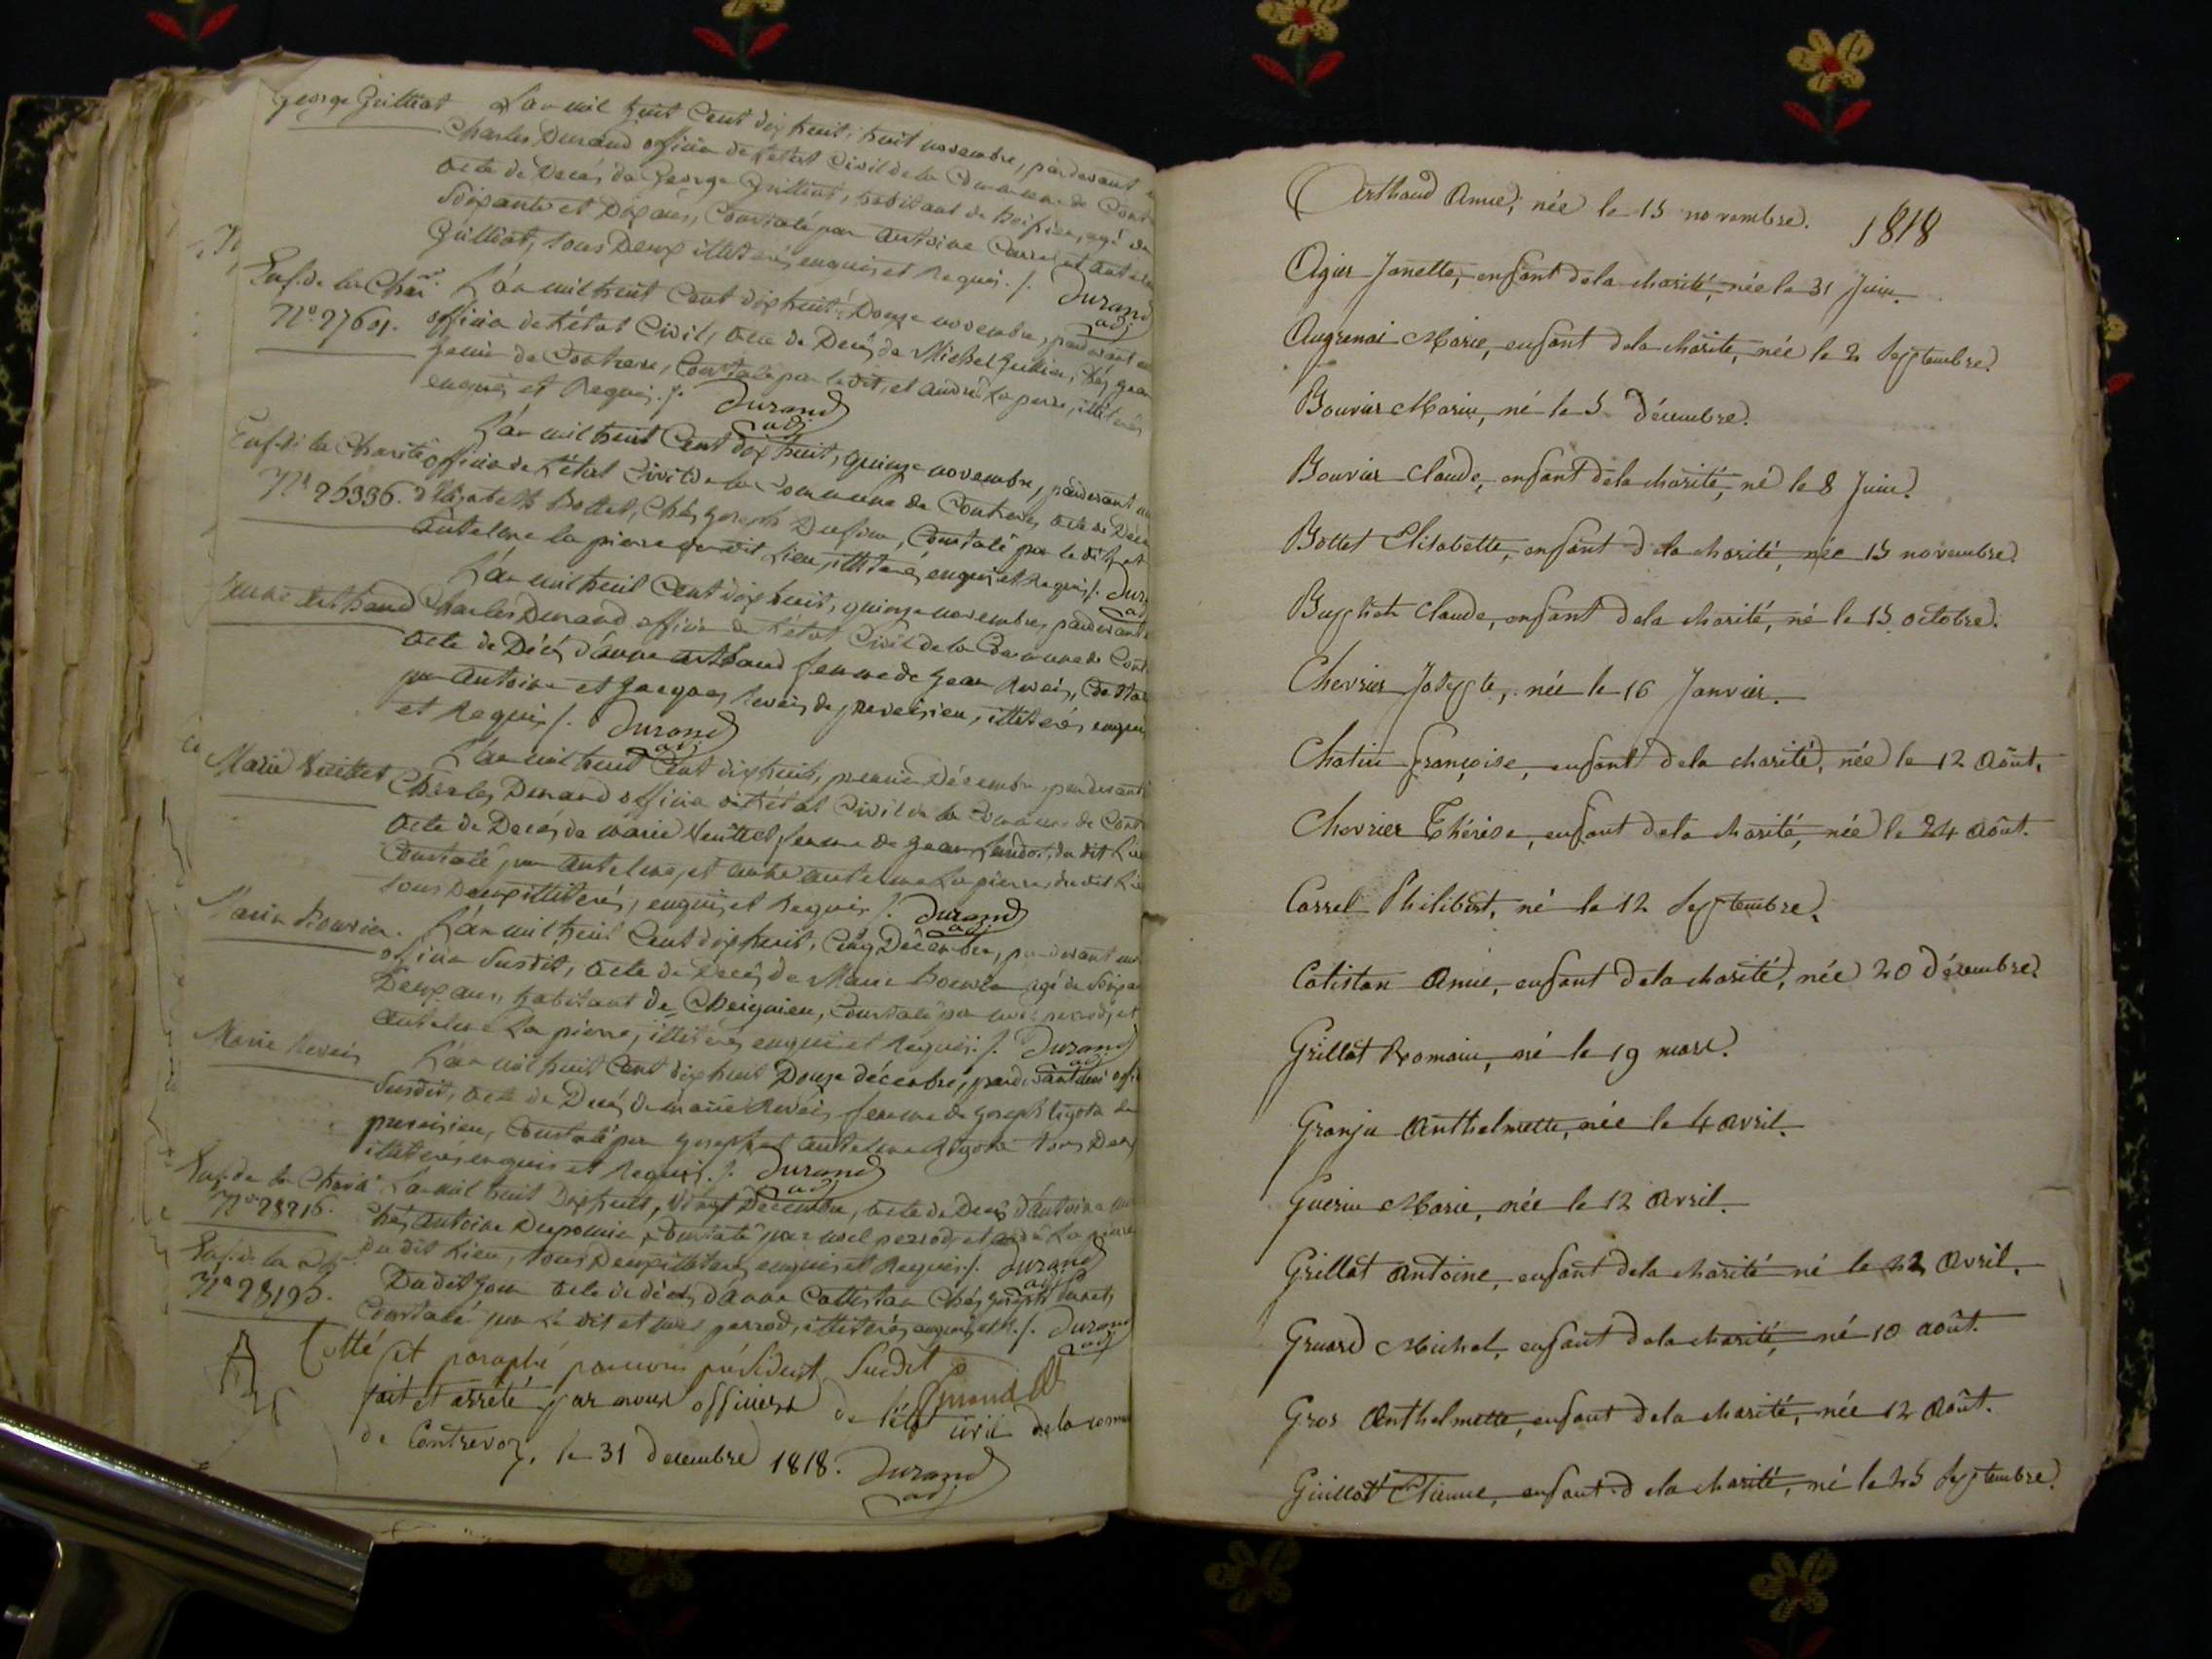 George Guilliot L'an mil huit Cent dix huit, huit novembre, pardevant
Charles Durand officier de l'état Civil de la Commune de Cont
acte de Décès de George Guilliot, habitant de Boissieu, agé de
Soixante et Dix ans, Constaté par antoine et
Guilliot, tous Deux illiterés enquis et Requis ./. Durand
adj
Enf. de la Char L'an mil huit Cent dix huit, Douze novembre, pardevant
N° 27601. officier de l'état Civil, acte de Décès de Michel Chés
de Contrevoz, Constaté par le dit, et andré Lapierre, illiterés
enquis et Requis ./. Durand
adj
L'an mil huit Cent dix huit, quinze novembre, pardevant
Enf. de la Charité officier de l'état Civil de la Commune de Contrevoz acte de Décès
N° 25336. d'Elizabeth Bottet, Chés Joseph Constaté par le dit et
antelme la pierre du dit Lieu, illiterés enquis et Requis ./. Dur
ad
L'an mil huit Cent dix huit, quinze novembre, pardevant
anne arthaud Charles Durand officier de l'état Civil de la Commune de Cont
acte de Décès d'anne arthaud femme de Jean Constaté
par antoine et Jacques de preveisieu, illiterés enquis
et Requis ./. Durand
adj
L'an mil huit Cent dix huit, premier Décembre, pardevant
Marie Charles Durand officier de l'état Civil de la Commune de Cont
acte de Décès de marie femme de Jean du dit Lieu
Constaté par antelme, et autre antelme La pierre, du dit Lieu
tous Deux illiterés, enquis et Requis ./. Durand
adj
Marin Bouvier. L'an mil huit Cent dix huit, Cinq Décembre, pardevant
officier Susdit, acte de Décès de Marin Bouvier agé de Soixan
Deux ans, habitant de Cheignieu, Constaté par perrod, et
antelme La pierre, illiterés enquis et Requis ./. Durand
adj
Marie L'an mil huit Cent dix huit Douze décembre, pardevant
Susdit, acte de Décès de marie femme de Joseph de
preveisieu, Constaté par Joseph et antelme tous Deux
illiterés enquis et Requis ./. Durand
adj
Enf. de la Charé L'an mil huit Dix huit, Vingt Décembre, acte de Décès d'antoine
N° 28216. Chés antoine Constaté par perrod, et La pierre
du dit Lieu, tous Deux illiterés enquis et Requis ./. Durand
adj
Enf. de la Dudit Jour acte de décès d'anne Catistan Chés Joseph
N° 28195. Constaté par Le dit et perrod, illiterés enquis et R. ./. Durand
adj
Cotté et paraphé par nous président Susdit
fait et arreté par nous officier de l'état civil de la com
de Contrevoz, le 31 decembre 1818. Durand
adj
Arthaud Anne, née le 15 novembre. 1818
Agier Janette, enfant dela charité, née le 31 Juin.
Augrenai Marie, enfant dela charité, née le 2 Septembre.
Bouvier Marin, né le 5 décembre.
Bouvier Claude, enfant dela charité, né le 8 Juin.
Bottet Elisabette, enfant dela charité, née 15 novembre.
Claude, enfant dela charité, né le 15 octobre.
Chevrier Josephte, née le 16 Janvier.
Chatin françoise, enfant dela charité, née le 12 Août.
Chevrier Thérèse, enfant dela charité, née le 24 Août.
Carrel Philibert, né le 12 Septembre.
Catistan Anne, enfant dela charité, née 20 décembre.
Grillot Romain, né le 19 mars.
Granju Anthelmette, née le 4 avril.
Guerin Marie, née le 12 Avril.
Grillat Antoine, enfant dela charité né le 22 Avril.
Gruard Michel, enfant dela charité, né 10 août.
Gros Anthelmette, enfant dela charité, née 12 Août.
Guillot Etienne, enfant dela charité, né le 25 Septembre.